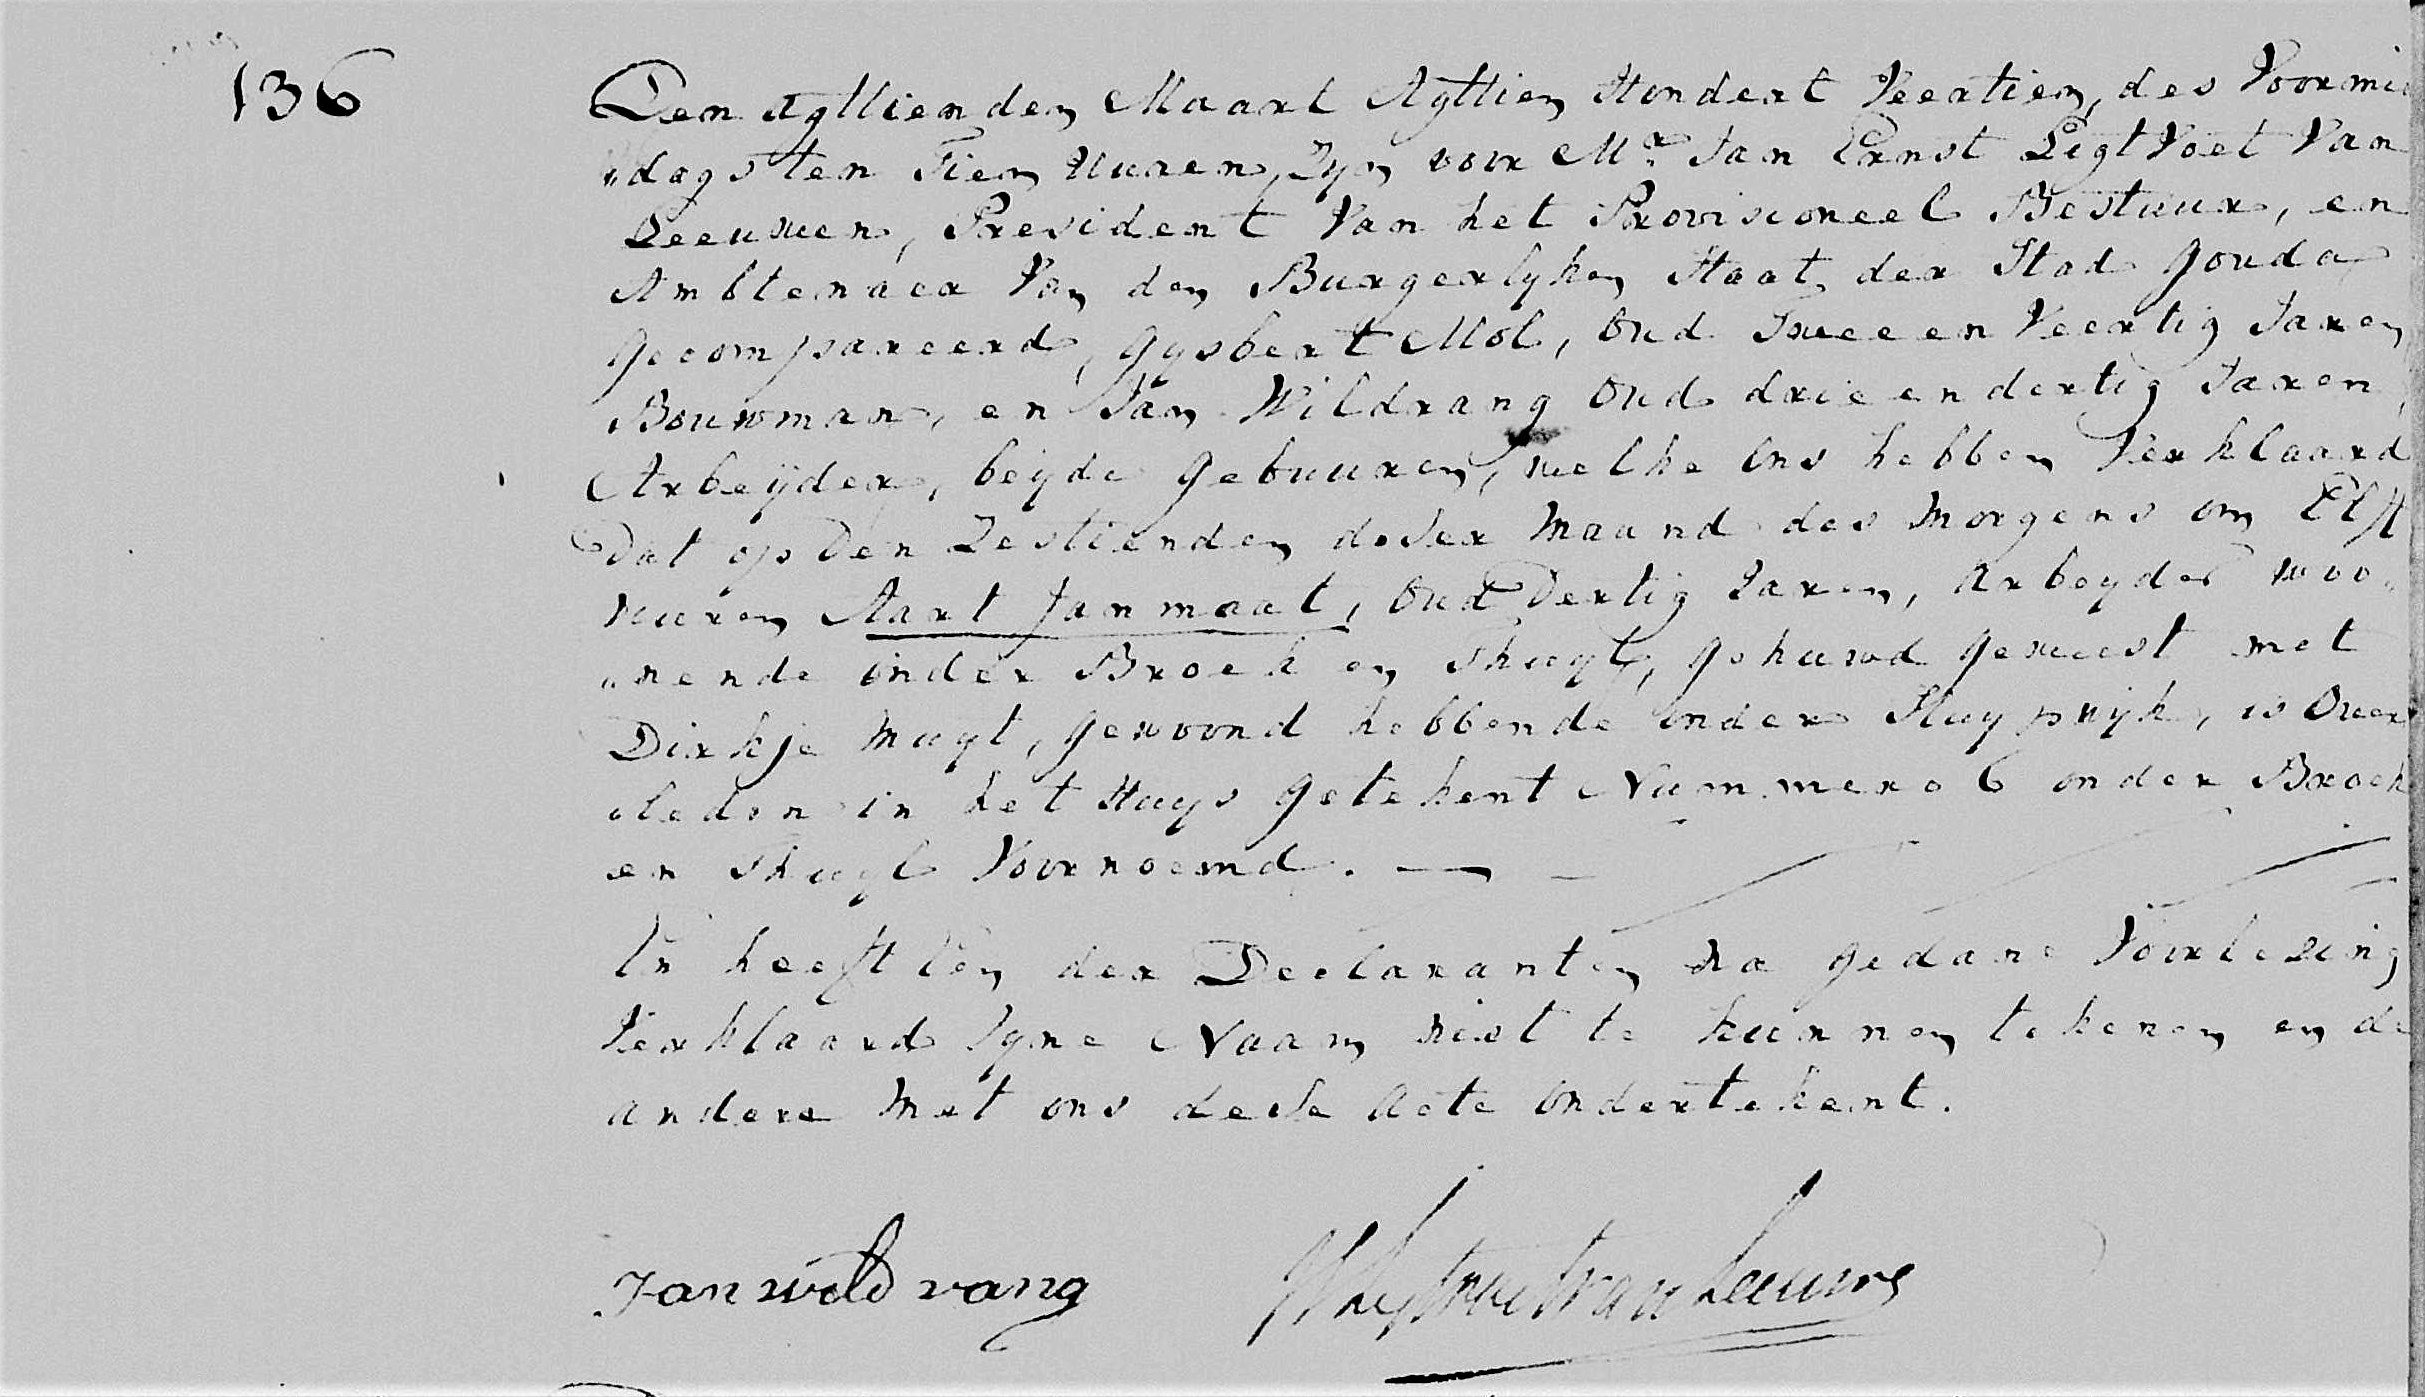 136
Den Agttienden Maart Agttien Hondert Veertien, des Voormid
"dags ten Tien Uuren, Zyn voor Mr. Jan Ernst Ligtvoet Van
Leeuwen, President Van het Provisioneel Bestuur, en
Ambtenaer Van den Burgerlyken Staat der Stad Gouda
Gecompareerd, Gysbert Mol, Oud Twee en Veertig Jaren
Bouwman, en Jan Wildrang Oud drie en dertig Jaren,
Arbeyder, beyde Gebuuren, welke Ons hebben Verklaard
Dat op Den Zestienden deser Maand des Morgens om Elft
uuren Aart Janmaat, Oud Dertig Jaren, Arbeyder woo"
"nende onder Broek en Thuyl, Gehuwd Geweest met
Dirkje Muyt, Gewoond hebbende onder Stuypwyk, is Over
"leden in het Huys Getekent Nummero 6 onder Broek
en Thuyl Voornoemd. —
En heeft één der Declaranten na Gedane Voorlezing
Verklaard Zyne Naam niet te kunnen tekenen en de
andere Met ons dese Acte Ondertekent.
Jan wildrang
Ligtvoet van Leeuwen